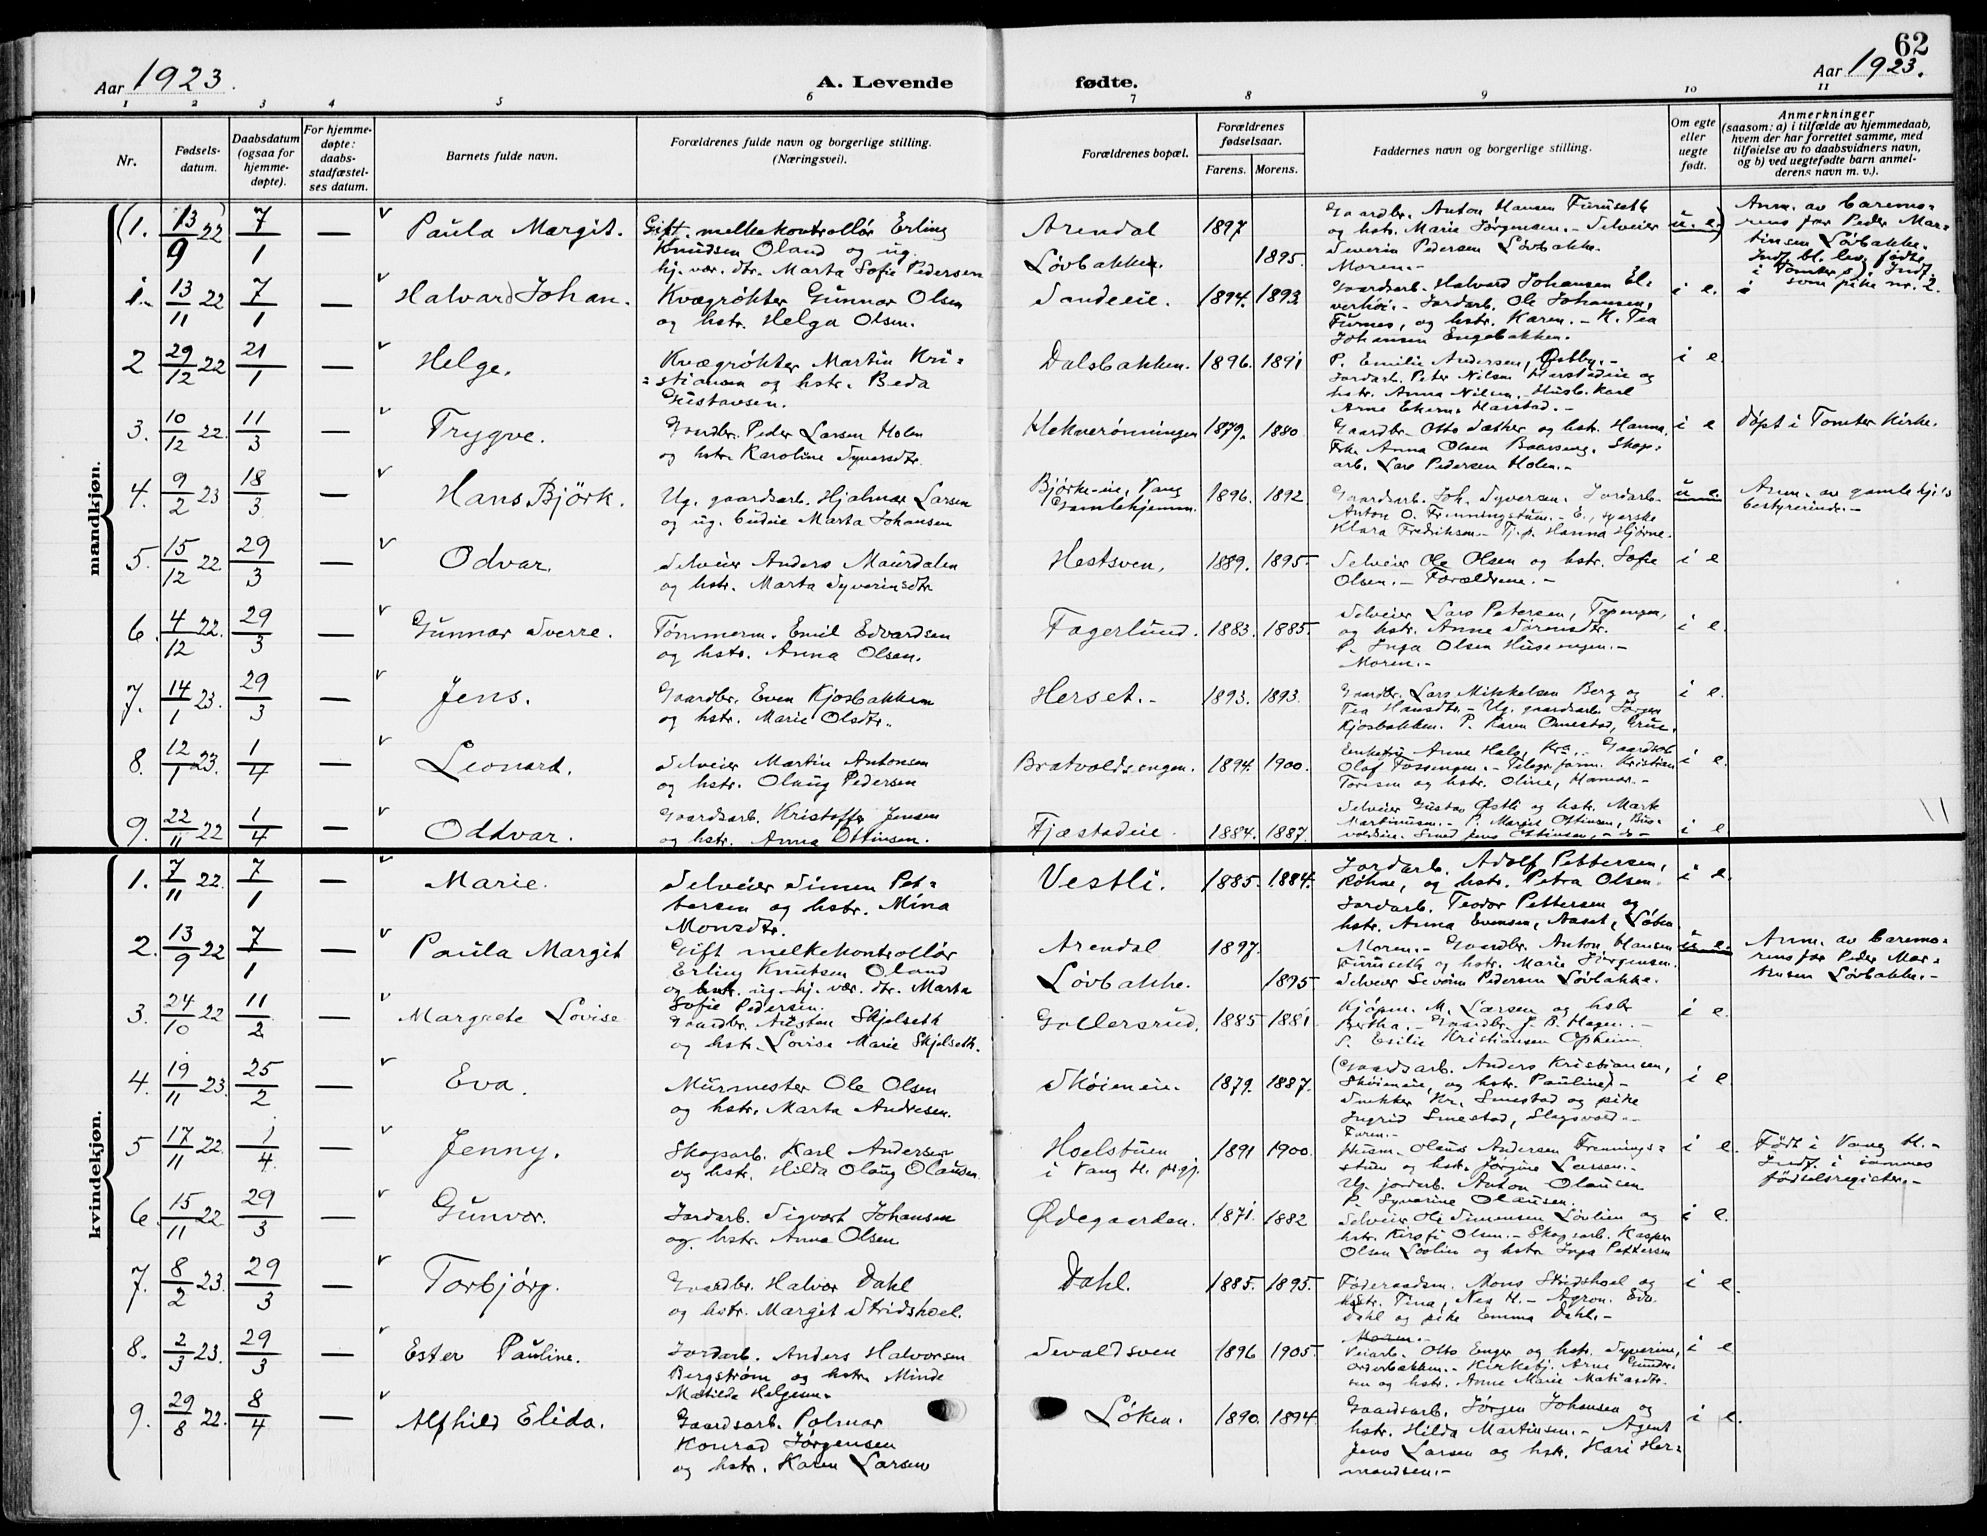 62
Aar 1923.
A. Levende fødte.
Aar 1923.
1 2 3 4 5 6 7 8 9 10 11
Nr.
Fødsels-
datum.
Daabsdatum
(ogsaa for
hjemme-
døpte).
For hjemme-
døpte:
daabs-
stadfæstel-
ses datum.
Barnets fulde navn.
Forældrenes fulde navn og borgerlige stilling.
(Næringsvei).
Forældrenes bopæl.
Forældrenes
fødselsaar.
Farens. Morens.
Faddernes navn og borgerlige stilling.
Om egte
eller
uegte
født.
Anmerkninger
(saasom: a) i tilfælde av hjemmedaab,
hvem der har forrettet samme, med
tilføielse av to daabsvidners navn,
og b) ved uegtefødte barn anmel-
derens navn m. v.).
mandkjøn.
(1. 13/9 22 7/1 — Paula Margit.
Gift melkekontrollør Erling
Knudsen Oland og ug.
hj. vær. dtr. Marta Sofie Pedersen
Arendal 1897
Løvbakken. 1895.
Gaardbr. Anton Hansen Furuseth
og hstr. Marie Jørgensen. - Selveier
Severin Pedersen Løvbakke.
Moren.-
u. e.)
Anm. av barnemo-
rens far Peder Mar-
tinsen Løvbakke.
Indf. bl. lev. fødte
i Tomter s). Indf.
som pike nr. 2.
1. 13/11 22 7/1 — Halvard Johan.
Kvægrøkter Gunnar Olsen
og hstr. Helga Olsen.
Sandeie. 1894. 1893
Gaardarb. Halvard Johansen El-
verhøi.- Jordarb. Ole Johansen,
Furnes, og hstr. Karen. - K. Tea
Johansen Engebakken.
i e.
2 29/12 22 21/1 — Helge.
Kvægrøkter Martin Kri=
=stiansen og hstr. Beda
Gustavsen.
Dalsbakken. 1896. 1891
P. Emilie Andersen, Østby.-
Jordarb. Peter Nilsen Harstadeie og
hstr. Anna Nilsen. Husb. karl
Arne Ekern, Harstad.-
i e.
3. 10/12 22. 11/3 — Trygve.
Gaardbr. Peder Larsen Holen
og hstr. Karoline Syversdtr.
Hekverønningen 1879. 1880
Gaardbr. Otto Sæther og hstr. Hanna.
Frk. Anna Olsen Baarseng. Skog-
arb. Lars Pedersen Holen.-
i e
Døpt i Tomter Kirke.
4. 9/2 23 18/3 — Hans Björk.
Ug. gaardsarb. Hjalmar Larsen
og ug. budeie Marta Johansen
Bjørke-eie, Vang
Gamlehjemm. 1896. 1892
Gaardsarb. Joh. Syversen. Jordarb.
Anton O. Frenningstuen.- E., syerske
Klara Fredriksen - Tj.p. Hanna Hjørne.
u. e.
Anm. av gamlehj.'s
bestyrerinde.-
5. 15/12 22. 29/3 — Odvar.
Selveier Anders Maurdalen
og hstr. Marta Syverinsdtr
Hestsven, 1889. 1895-
Selveier Ole Olsen og hstr. Sofie
Olsen. - Forældrene.-
i e
6. 4/12 22. 29/3 — Gunnar Sverre.
Tømmerm. Emil Edvardsen
og hstr. Anna Olsen.
Fagerlund. 1883. 1885.
Selveier Lars Petersen, Topengen,
og hstr. Anne Sørensdtr.
P. Inga Olsen Husengen.-
Moren.-
i e.
7. 14/1 23. 29/3 — Jens.
Gaardbr. Even Kjosbakken
og hstr. Marie Olsdtr.
Herset.- 1893. 1893.
Gaardbr. Lars Mikkelsen Berg og
Tea Hansdtr. - Ug. gaardsarb. Jørgen
Kjosbakken. P. Karen Omestad, Grue.
i e.
8. 12/1 23. 1/4 — Leonard.
Selveier Martin Antonsen
og hstr. Olaug Pedersen
Bratvoldsengen. 1894. 1900.
Enkefru Anne Halg, Kra. - Gaardsb
Olaf Fossengen. - Telegr.form. Kristian
Toresen og hstr. Oline, Hamar.-
i e.
9. 22/11 22 1/4 — Oddvar.
Gaardsarb. Kristoffer Jensen
og hstr. Anna Ottinsen.
Fjæstadeie. 1884. 1887.
Selveier Gustav Østli og hstr. Mart
Martinusen. - P. Margit Ottinsen, Bus-
voldeie. Smed Jens Ottinsen, - do -
i e
kvindekjøn.
1. 7/11 22. 7/1 — Marie.
Selveier Simen Pet=
tersen og hstr. Mina
Monsdtr.
Vestli. 1885. 1884.
Jordarb. Adolf Pettersen,
Røhne, og hstr. Petra Olsen.
Jordarb. Teodor Pettersen og
hstr. Anna Evensen, Aaset, Løten
i e.
2. 13/9 22 7/1 — Paula Margit
Gift melkekontrollør
Erling Knutsen Oland
og ug. hj. vær. dtr. Marta
Sofie Pedersen.
Arendal 1897.
Løvbakke. 1895
Moren.- Gaardbr. Anton Hansen
Furuseth og hstr. Marie Jørgensen.
Selveier Severin Pedersen Løvbakke.
u. e.
Anm. av barnemo-
rens far Peder Mar-
tinsen Løvbakke.-
3. 24/10 22 11/2 — Margrete Lovise
Gaardbr. Austen Skjelseth
og hstr. Lovise Marie Skjelseth.
Gollersrud. 1885 1881
Kjøpm. M. Larsen og hstr
Bertha.- Gaardbr. J. B. Hagen.-
P. Emilie Kristiansen Opheim
i e.
4. 19/11 23. 25/2 — Eva.
Murmester Ole Olsen
og hstr. Marta Andresen.
Skøieneie. 1879. 1887.
(Gaardsarb. Anders Kristiansen,
Skøieneie, og hstr. Pauline).-
Snekker Kr. Smestad og pike
Ingrid Smestad, Slagsvold.-
Faren.-
i e
5 17/11 22. 1/4 — Jenny.
Skogsarb. Karl Andersen
og hstr. Hilda Olaug Olausen.
Hoelstuen
i Vang H. pgj. 1891 1900.
Husm. Olaus Andersen Frennings=
stuen og hstr. Jørgine Larsen.-
Ug. jordarb. Anton Olausen
P. Syverine Olausen.
i e.
Født i Vang H.-
Indf. i sammes
fødselsregister.-
6. 15/11 22 29/3 — Gunvor.
Jordarb. Sigvart Johansen
og hstr. Anna Olsen
Ødegaarden. 1871. 1882
Selveier Ole Simensen Løvlien og
hstr. Kirsti Olsen.- Skogsarb. Kasper
Olsen Løvlien og hstr Inga Pettersen
i e.
7. 8/2 23. 29/3 — Torbjørg.
Gaardbr. Halvor Dahl
og hstr. Margit Stridshoel.
Dahl. 1885. 1895-
Føderaadsm. Mons Stridshoel og
hstr. Tina, Nes H.- Agron. Ev.
Dahl og pike Emma Dahl.-
Moren.-
i e.
8. 2/3 23. 29/3 — Ester Pauline.
Jordarb. Anders Halvorsen
Bergstrøm og hstr. Minde
Matilda Helgesen.
Sevaldsven 1896 1905-
Veiarb. Otto Enger og hstr. Syverine,
Orderbakken.- Kirketj. Arne Gunder-
sen og hstr. Anne Marie Matiasdtr.
i e
9. 29/8 22. 8/4 — Alfhild Elida.
Gaardsarb. Palmar
Konrad Jørgensen
og hstr. Karen Larsen
Løken. 1890. 1894.
Gaardsarb. Jørgen Johansen og
hstr. Hilda Martinsen.- Agent
Jens Larsen og hstr. Kari Her=
mandsen.-
i e.